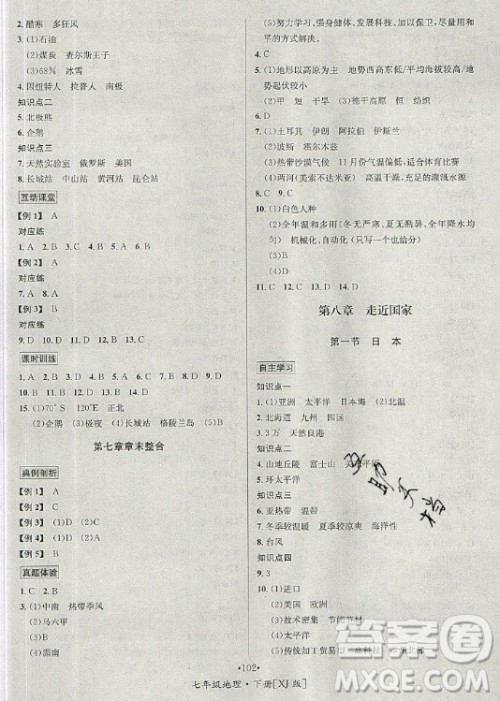 2. 酷寒 多狂风
3. (1)石油
(2)煤炭 查尔斯王子
(3)68% 冰雪
4. 因纽特人 拉普人 南极
知识点二
5. 北极熊
6. 企鹅
知识点三
7. 天然实验室 俄罗斯 美国
8. 长城站 中山站 黄河站 昆仑站
互动课堂
【例1】 A
对应练
1. C 2. B 3. D 4. C 5. C
【例2】 A
对应练
6. B 7. C 8. B 9. A
【例3】 A
对应练
10. D 11. B 12. B 13. C
课时训练
1. D 2. B 3. A 4. C 5. A 6. D 7. B 8. C 9. B
10. B 11. D 12. B 13. D 14. C
15. (1)70°S 120°E 正北
(2)企鹅 (3)极夜 (4)长城站 格陵兰岛
第七章章末整合
典例剖析
【例1】 A
【例2】 C
【例3】 (1)D (2)D
【例4】 (1)D (2)C
【例5】 B
真题体验
1. C 2. B
3. (1)中南 热带季风
(2)马六甲
(3)B
(4)湄南
(5)努力学习,强身健体,发展科技,保护环境(言之有理即可)
4. C
5. (1)地形以高原为主 地势西高东低/平均海拔较高/地势起伏较小
(2)甲 短 干
(3)德干高原 恒 纺织
6. B 7. C 8. D
9. (1)土耳其 伊朗 阿拉伯 伊斯兰
(2)波斯 霍尔木兹
(3)热带沙漠气候 全年炎热干燥
(4)两河(美索不达米亚) 石油 水源
10. (1)白色人种
(2)全年温和而多雨(冬无严寒,夏无酷暑,全年降水均匀) 机械化,自动化(只写一个也给分)
11. C 12. D 13. B 14. D
第八章 走近国家
第一节 日 本
自主学习
知识点一
1. (1)亚洲 太平洋 日本海 (2)北温
2. 北海道 九州 四国
3. 3万 天然良港
知识点二
4. 山地丘陵 富士山
5. 环太平洋
知识点三
6. 亚热带 温带
7. 冬季较温暖 夏季较凉爽 海洋性
8. 台风
知识点四
9. 3
10. (1)进口
(2)美国 欧洲
(3)技术密集
(4)太平洋
·102·
七年级地理·下册[XJ版]